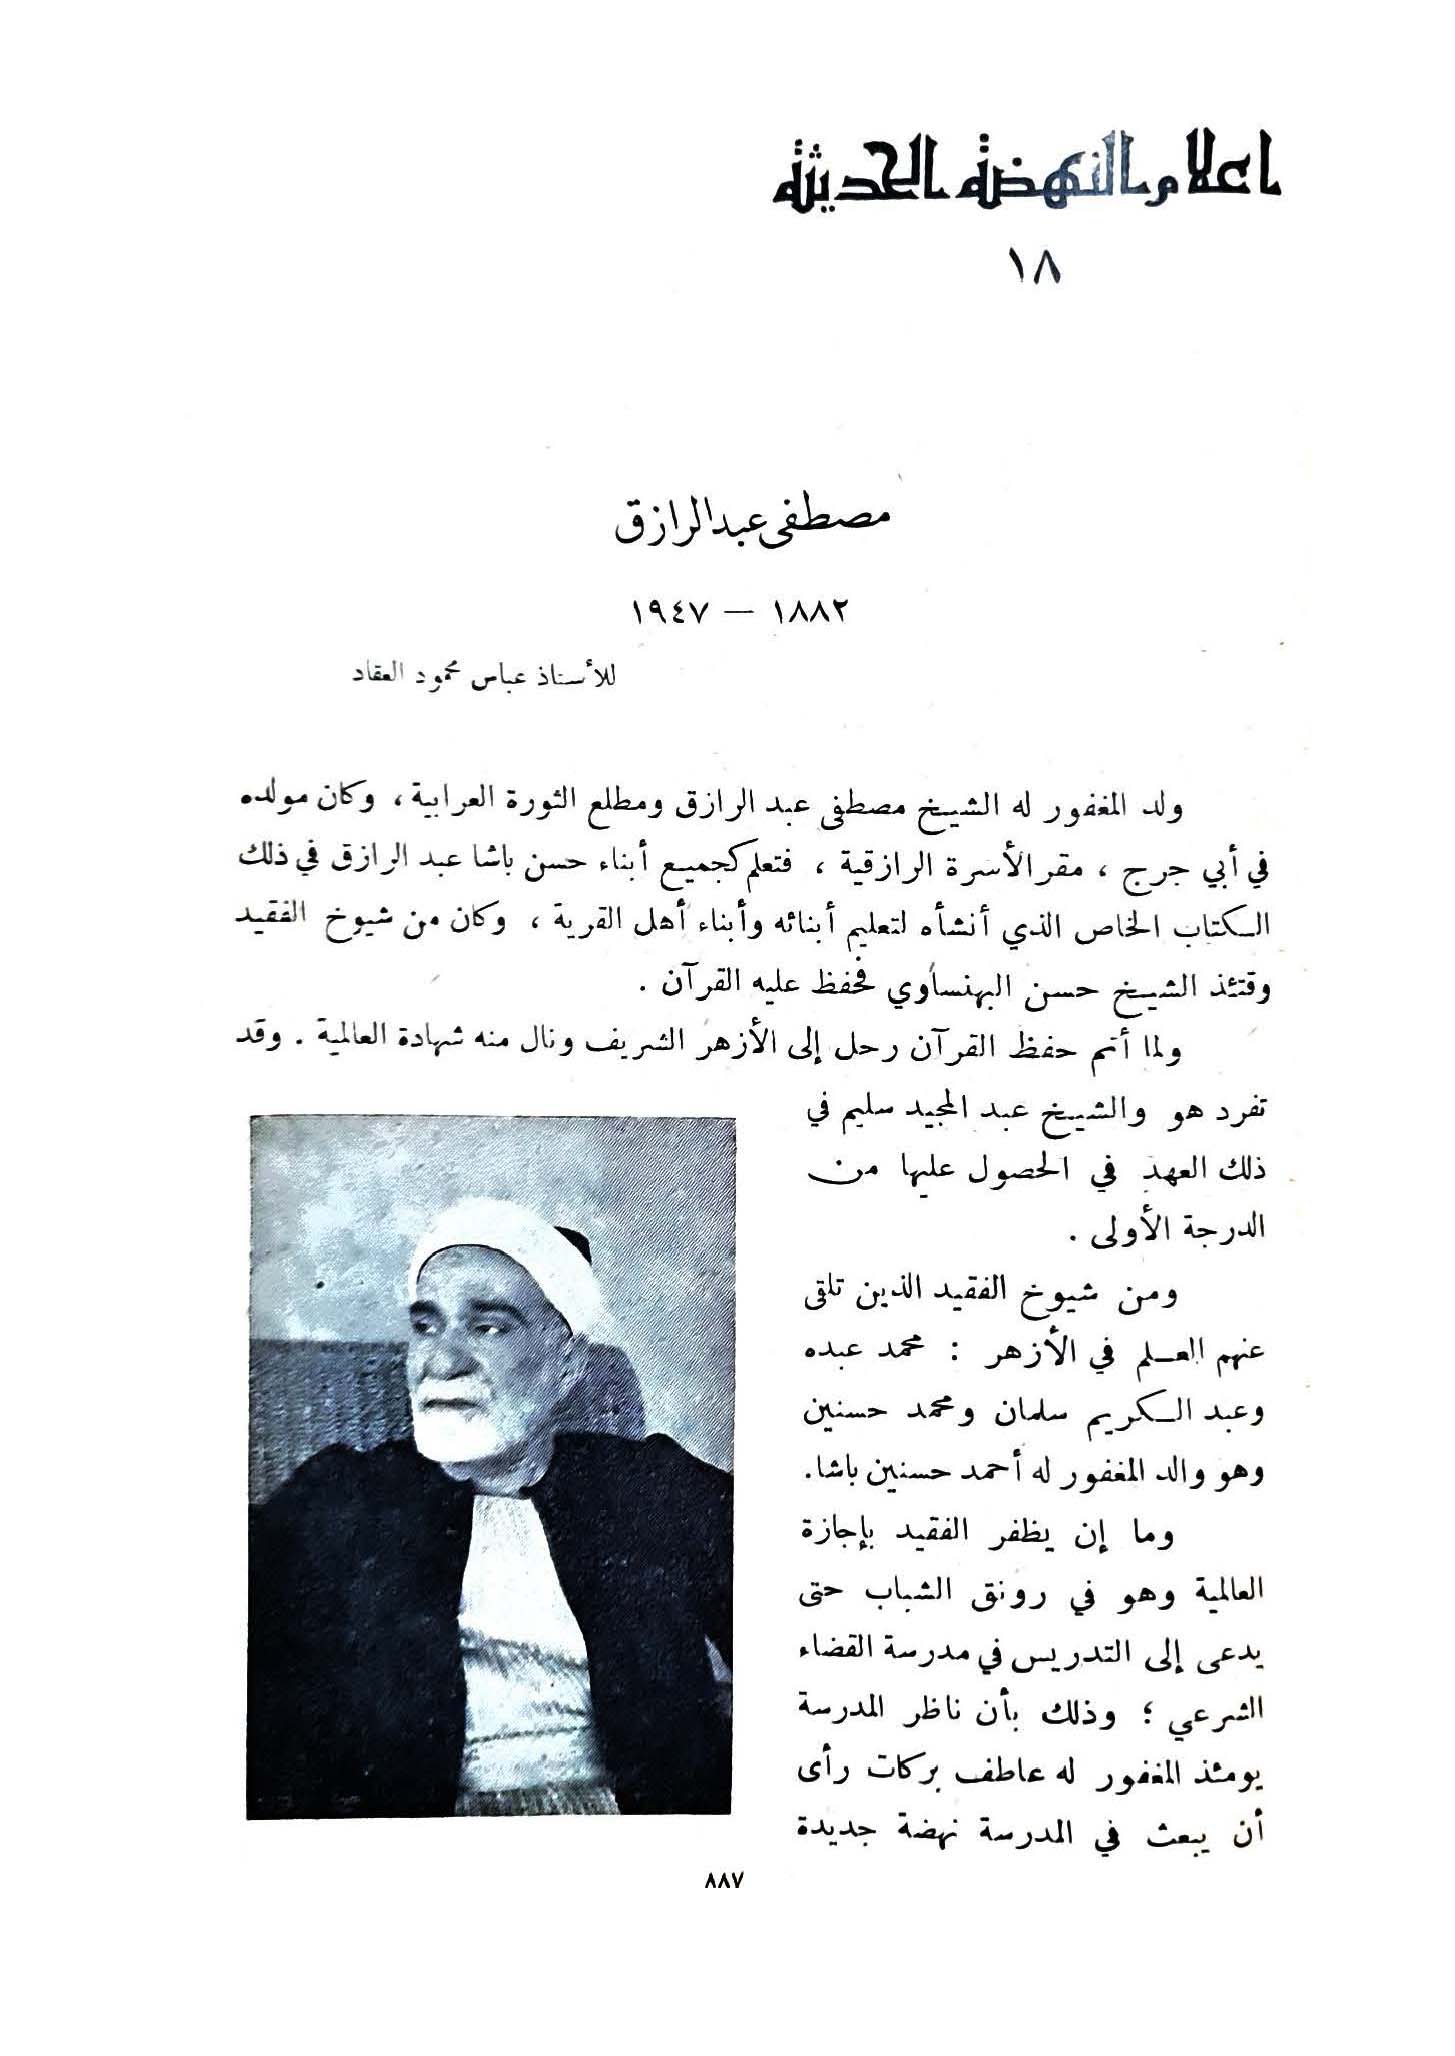 اعلام النهضة الحديثة
١٨
مصطفى عبد الرازق
١٨٨٢ — ١٩٤٧
للأستاذ عباس محمود العقاد
ولد المغفور له الشيخ مصطفى عبد الرازق ومطلع الثورة العرابية ، وكان مولده
في أبي جرج ، مقر الأسرة الرازقية ، فتعلم كجميع أبناء حسن باشا عبد الرازق في ذلك
الكتاب الخاص الذي أنشأه لتعليم أبنائه وأبناء أهل القرية ، وكان من شيوخ الفقيد
وقتئذ الشيخ حسن البهنساوي فحفظ عليه القرآن .
ولما أتم حفظ القرآن رحل إلى الأزهر الشريف ونال منه شهادة العالمية . وقد
تفرد هو والشيخ عبد المجيد سليم في
ذلك العهد في الحصول عليها من
الدرجة الأولى .
ومن شيوخ الفقيد الذين تلقى
عنهم العلم في الأزهر : محمد عبده
وعبد الكريم سلمان ومحمد حسنين
وهو والد المغفور له أحمد حسنين باشا.
وما إن يظفر الفقيد بإجازة
العالمية وهو في رونق الشباب حتى
يدعى إلى التدريس في مدرسة القضاء
الشرعي ؛ وذلك بأن ناظر المدرسة
يومئذ المغفور له عاطف بركات رأى
أن يبعث في المدرسة نهضة جديدة
٨٨٧